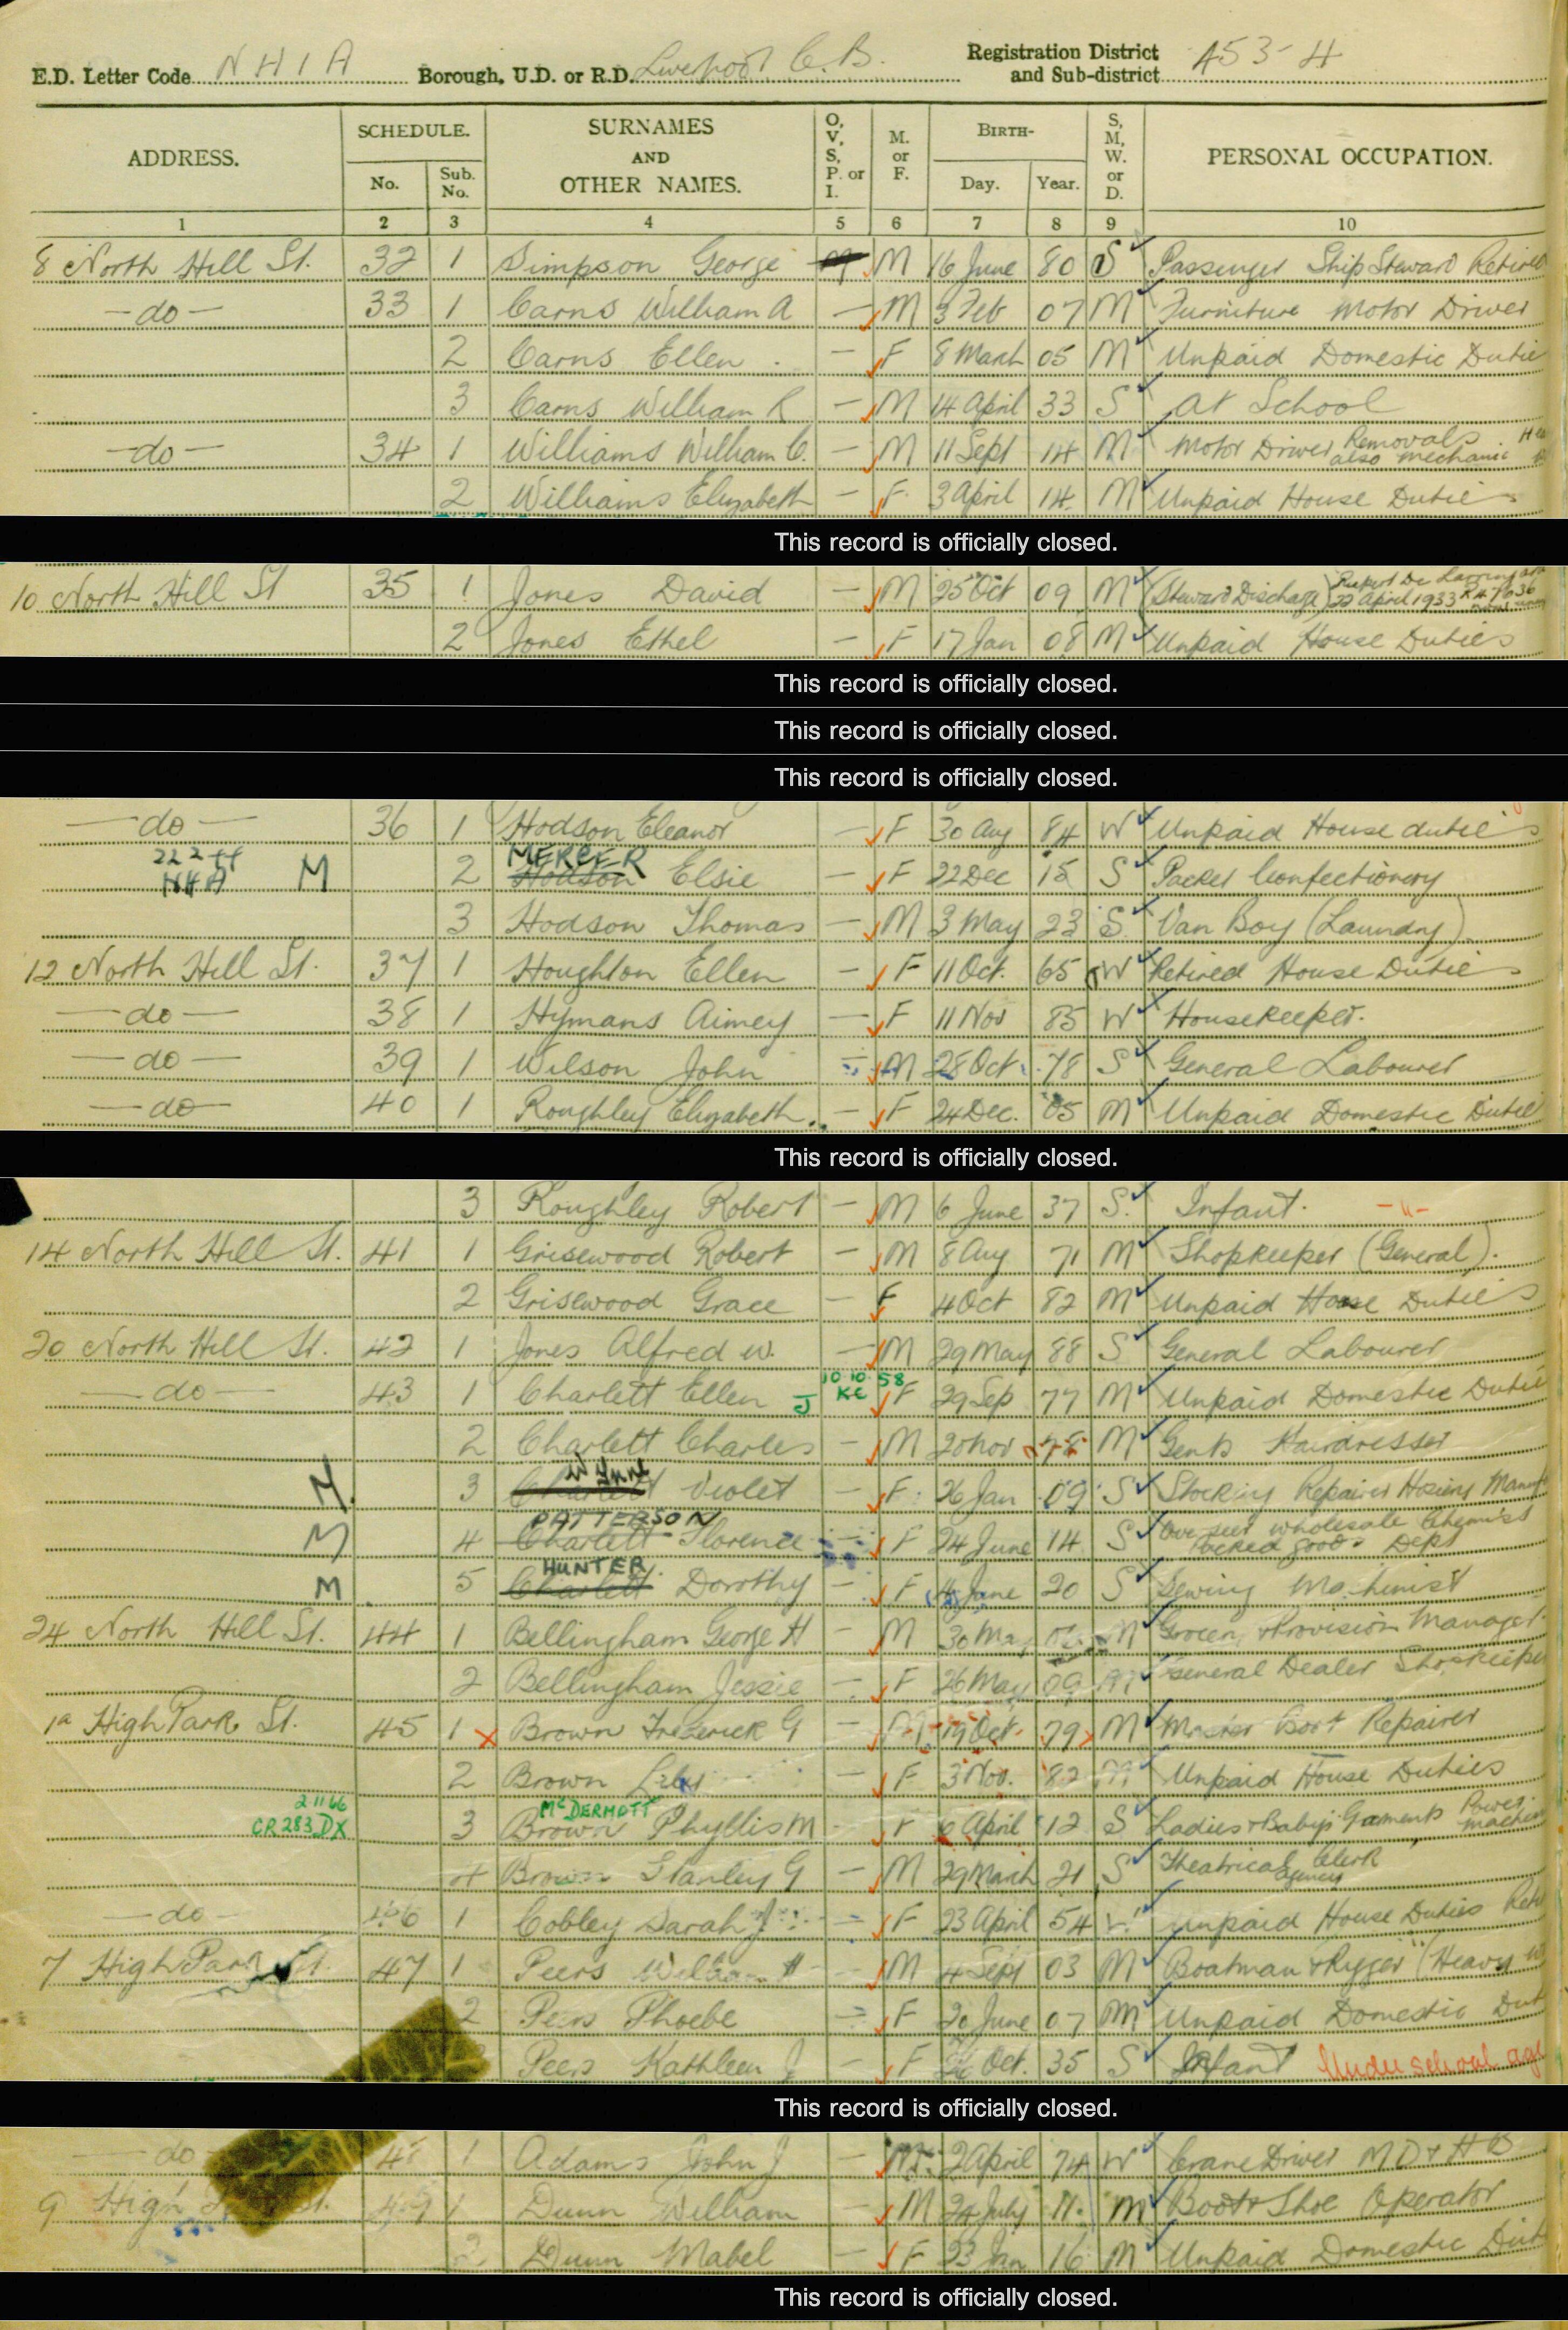 E.D. Letter Code NHIA Borough, U.D. or R.D. Liverpool C.B. Registration District and Sub-district 453-4
ADDRESS. SCHEDULE. No. Sub. No. SURNAMES AND OTHER NAMES. O, V, S, P. or I. M. or F. BIRTH- Day. Year. S, M, W. or D. PERSONAL OCCUPATION.
1 2 3 4 5 6 7 8 9 10
8 North Hill St. 32 1 Simpson George M 16 June 80 S Passenger Ship Steward Retired
do 33 1 Carns William A — M 3 Feb 07 M Furniture Motor Driver
2 Carns Ellen — F 8 March 05 M Unpaid Domestic Dutie
3 Carns William R — M 14 April 33 S At School
do 34 1 Williams William C. — M 11 Sept 14 M Motor Driver Removals. also mechanic
2 Williams Elizabeth — F 3 April 14 M Unpaid House Duties
This record is officially closed.
10 North Hill St 35 1 Jones David — M 25 Oct 09 M (Steward Discharge) 22 April 1933
2 Jones Ethel — F 17 Jan 08 M Unpaid House Duties
This record is officially closed.
This record is officially closed.
This record is officially closed.
do 36 1 Hodson Eleanor — F 30 Aug 84 W Unpaid House duties
22 2 44 NHA M 2 Hodson MERCER Elsie — F 22 Dec 15 S Packer Confectionery
3 Hodson Thomas — M 3 May 23 S Van Boy (Laundry)
12 North Hill St. 37 1 Houghton Ellen — F 11 Oct. 65 W Retired House Duties
do 38 1 Hymans Aimey — F 11 Nov 85 W Housekeeper.
do 39 1 Wilson John — M 28 Oct. 78 S General Labourer
do 40 1 Roughley Elizabeth. — F 24 Dec. 05 M Unpaid Domestic Dutie
This record is officially closed.
3 Roughley Robert — M 6 June 37 S. Infant. -"-
14 North Hill St. 41 1 Grisewood Robert — M 8 Aug 71 M Shopkeeper (General).
2 Grisewood Grace — F 4 Oct 82 M Unpaid House Duties
20 North Hill St. 42 1 Jones Alfred W. — M 29 May 88 S General Labourer
do 43 1 Charlett Ellen J 10 10 58 KC F 29 Sep 77 M Unpaid Domestic Dutie
2 Charlett Charles — M 20 Nov 78 M Gents Hairdresser
M 3 Charlett Wynne Violet F 26 Jan 09 S Stocking Repairer Hosiery Manuf
M 4 Charlett PATTERSON Florence F 24 June 14 S Overseer wholesale Chemist Packed goods Dept
M 5 Charlett HUNTER Dorothy — F June 20 S Sewing Machinist
24 North Hill St. 44 1 Bellingham George H — M 30 May M Grocery & Provision Manager
2 Bellingham Jessie — F 26 May 09 M General Dealer Shopkeeper
1a High Park St. 45 1 Brown Frederick G — M 19 Oct. 79 M Master Boot Repairer
2 Brown F 3 Nov. 82 M Unpaid House Duties
2 11 66 CR283 DX 3 Brown McDERMOTT Phyllis M F 6 April 12 S Ladies & Babys Garments Power machin
4 Brown Stanley G — M 29 March 21 S Theatrical Agency Clerk
do 46 1 Cobley Sarah J — F 23 April 54 Unpaid House Duties
7 High Park St. 47 1 Peers William H — M 4 Sept 03 M Boatman & Rigger (Heavy
2 Peers Phoebe — F 20 June 07 M Unpaid Domestic Dut
Peers Kathleen J — F Oct. 35 S Infant Under school age
This record is officially closed.
do 48 1 Adams John J — M 2 April 74 W Crane Driver M D & H B
9 High St. 49 1 Dunn William M 24 July 11. M Boot & Shoe Operator
2 Dunn Mabel — F 23 Jan 16 M Unpaid Domestic Dut
This record is officially closed.